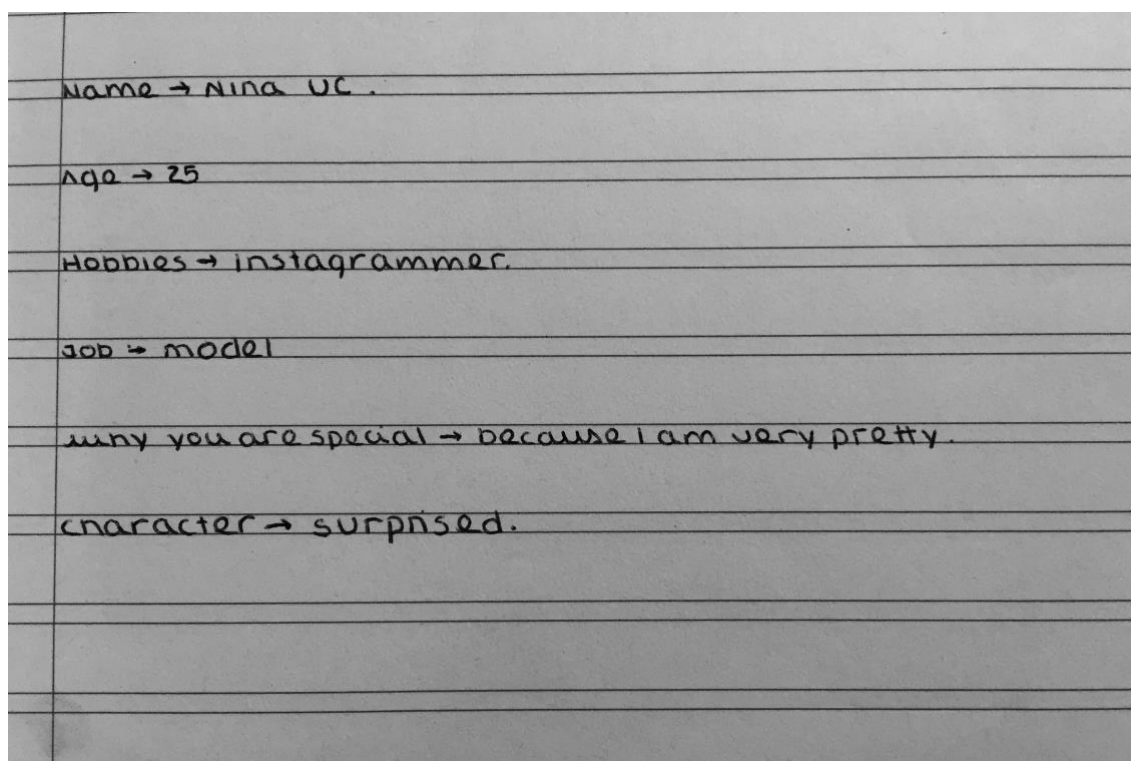 Name → Nina UC.
Age → 25
Hobbies → instagrammer.
Job → model
why you are special → because I am very pretty.
character → surprised.